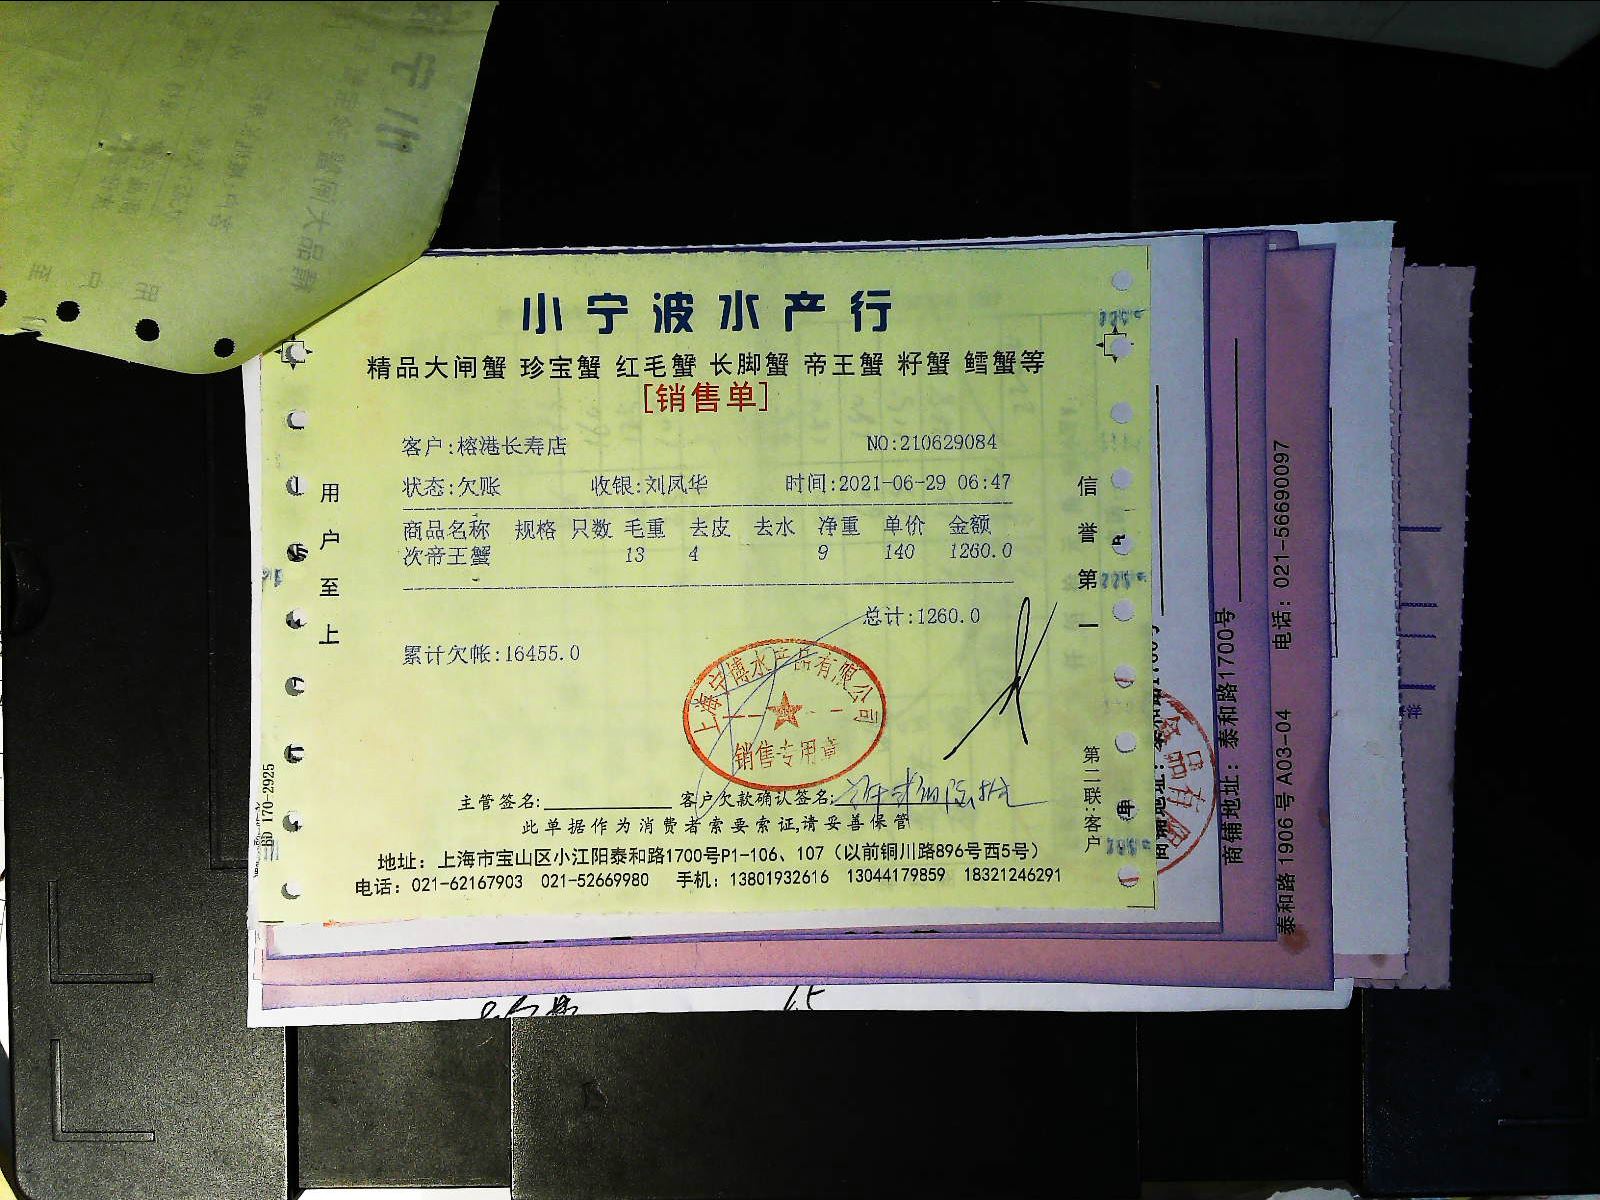 小宁波水产行
精品大闸蟹 珍宝蟹 红毛蟹 长脚蟹 帝王蟹 籽蟹 鳕蟹等
[销售单]
客户:榕港长寿店 NO:210629084
状态:欠账 收银:刘凤华 时间:2021-06-29 06:47
商品名称 规格 只数 毛重 去皮 去水 净重 单价 金额
次帝王蟹 13 4 9 140 1260.0
总计:1260.0
累计欠帐:16455.0
上海宁博水产品有限公司
销售专用章
主管签名: 客户欠款确认签名:
此单据作为消费者索要索证,请妥善保管
地址：上海市宝山区小江阳泰和路1700号P1-106、107（以前铜川路896号西5号）
电话：021-62167903 021-52669980 手机：13801932616 13044179859 18321246291
用户至上
信誉第一
第二联:客户
170-2925
商铺地址：泰和路1700号
泰和路1906号A03-04 电话：021-56690097
品有限
洋